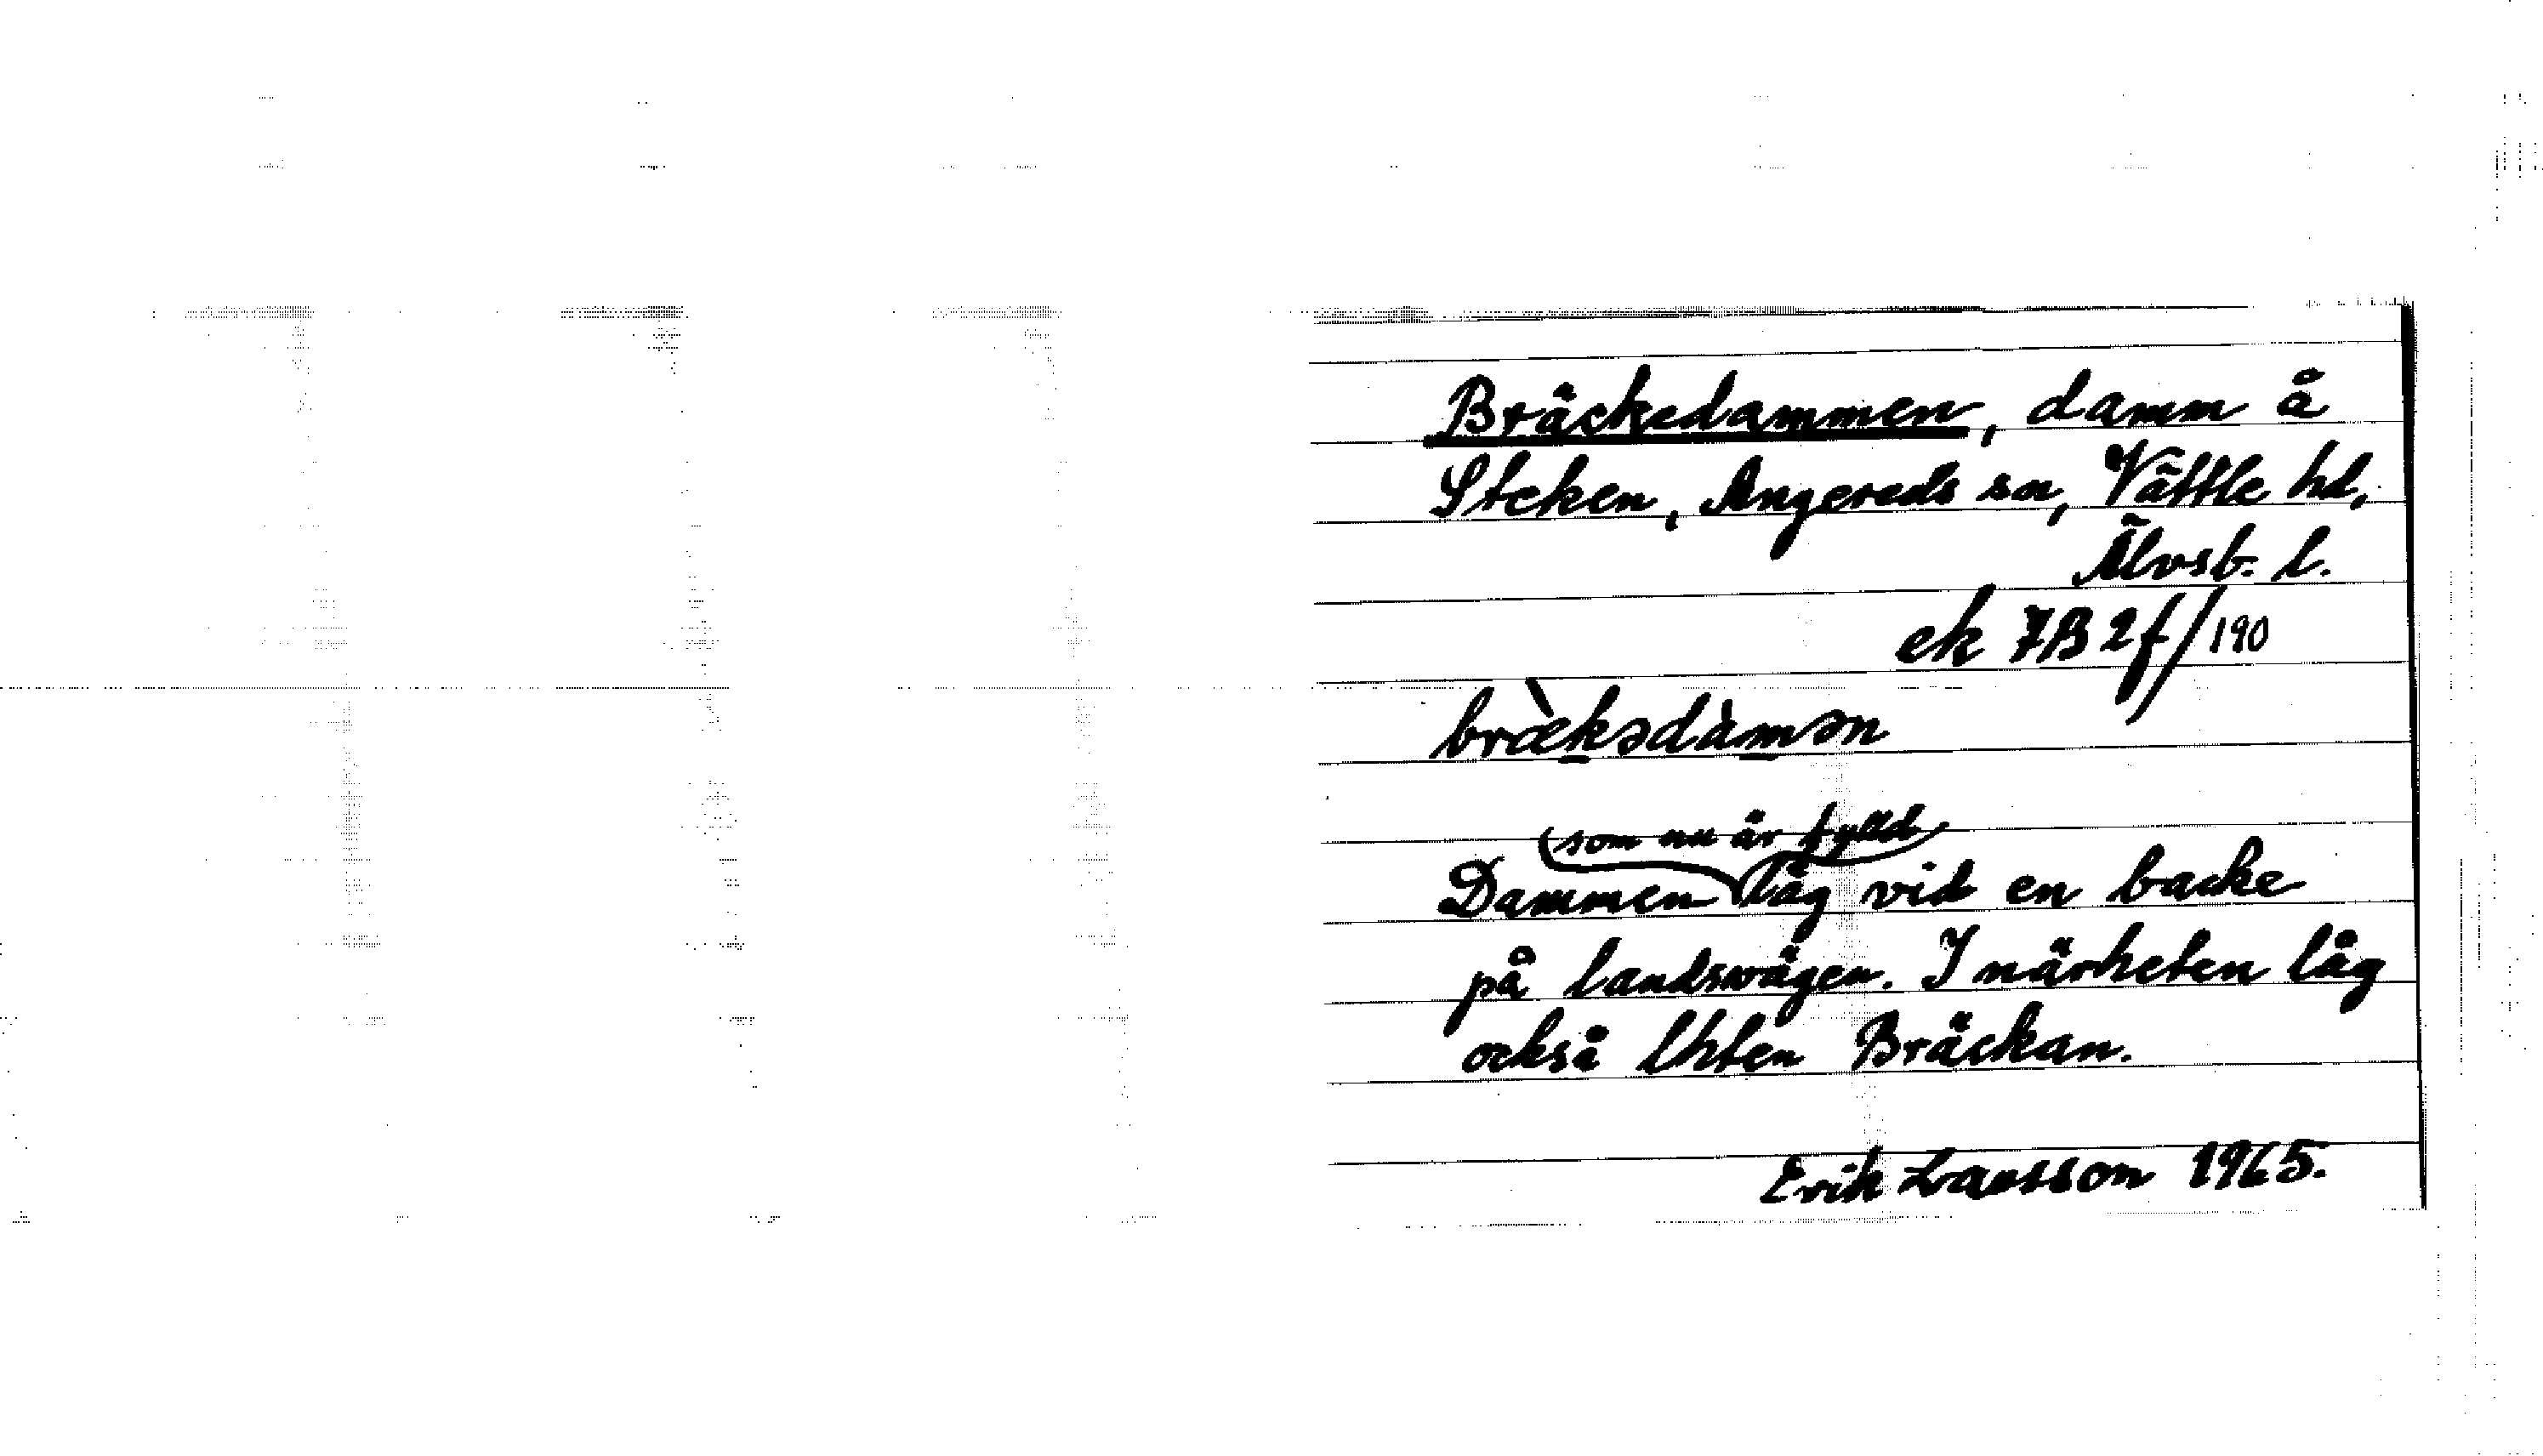 Bräckedammen, damm å
Steken, Angereds sn, Vättle hd,
Älvsb. l.
ek 7B 2f/190
bræ̀kədàmən
(som nu är fylld)
Dammen låg vid en backe
på landsvägen. I närheten låg
också lhten Bräckan.
Erik Larsson 1965.